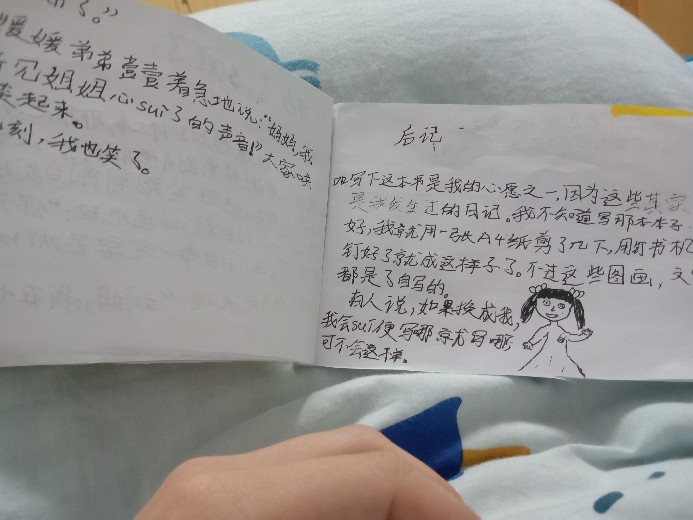 了。”
媛媛弟弟壹壹着急地说：“妈妈，我
冗姐姐心sui了的声音！”大家哄
笑起来。
刻，我也笑了。
后记
写下这本书是我的心愿之一，因为这些其实
是我发生过的日记。我不知道写那本本子
好，我就用一张A4纸剪了几下，用订书机
钉好了就成这样子了。不过这些图画，文
都是了自写的。
有人说，如果换成我，
我会sui便写哪就写哪
可不会这样。